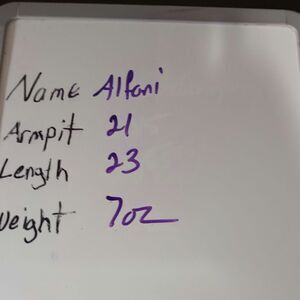 Name Alfani
Armpit 21
Length 23
Weight 7oz